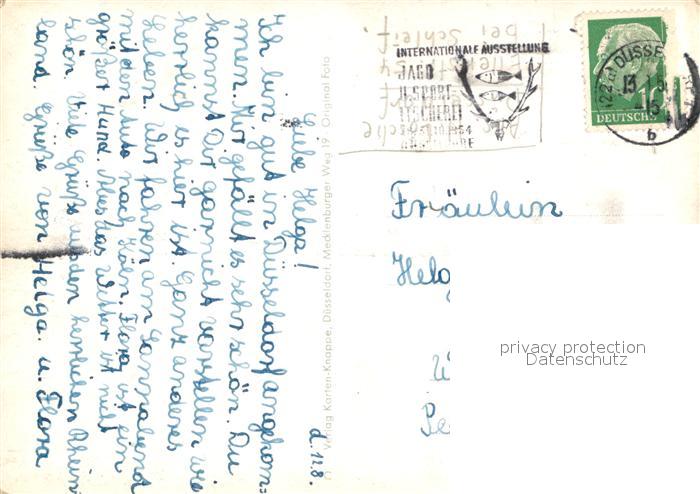 d. 12.8.
Liebe Helga!
Ich bin gut in Düsseldorf angekom=
men. Mir gefällt es sehr schön. Du
kannst Dir garnicht vorstellen wie
herrlich es hier ist. Ganz anderes
Leben. Wir fahren am Sonnabend
mit dem Auto nach Köln. Flora ist ein
großer Hund. Aber das Wetter ist nicht
schön. Viele Grüße aus den herrlichen Rhein
land. Grüße von Helga. u. Flora
Verlag Karten-Knappe, Düsseldorf, Mecklenburger Weg 19 Original Foto
INTERNATIONALE AUSSTELLUNG
JAGD
U. SPORT-
FISCHEREI
DÜSSELDORF
DÜSSE
b
DEUTSCHE
Fräulein
Helg
privacy protection
Datenschutz